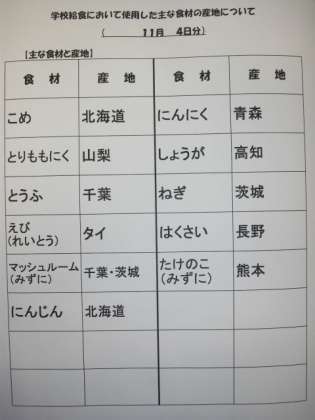 学校給食において使用した主な食材の産地について
( 11月 4日分)
【主な食材と産地】
食 材 産 地 食 材 産 地
こめ 北海道 にんにく 青森
とりももにく 山梨 しょうが 高知
とうふ 千葉 ねぎ 茨城
えび
(れいとう) タイ はくさい 長野
マッシュルーム
(みずに) 千葉・茨城 たけのこ
(みずに) 熊本
にんじん 北海道